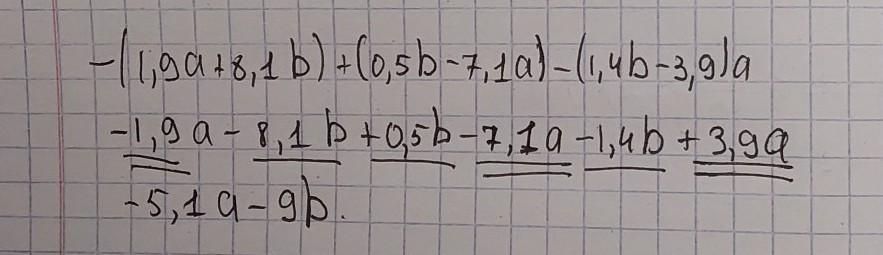 -(1,9a+8,1b)+(0,5b-7,1a)-(1,4b-3,9)a
-1,9a-8,1b+0,5b-7,1a-1,4b+3,9a
-5,1a-9b.